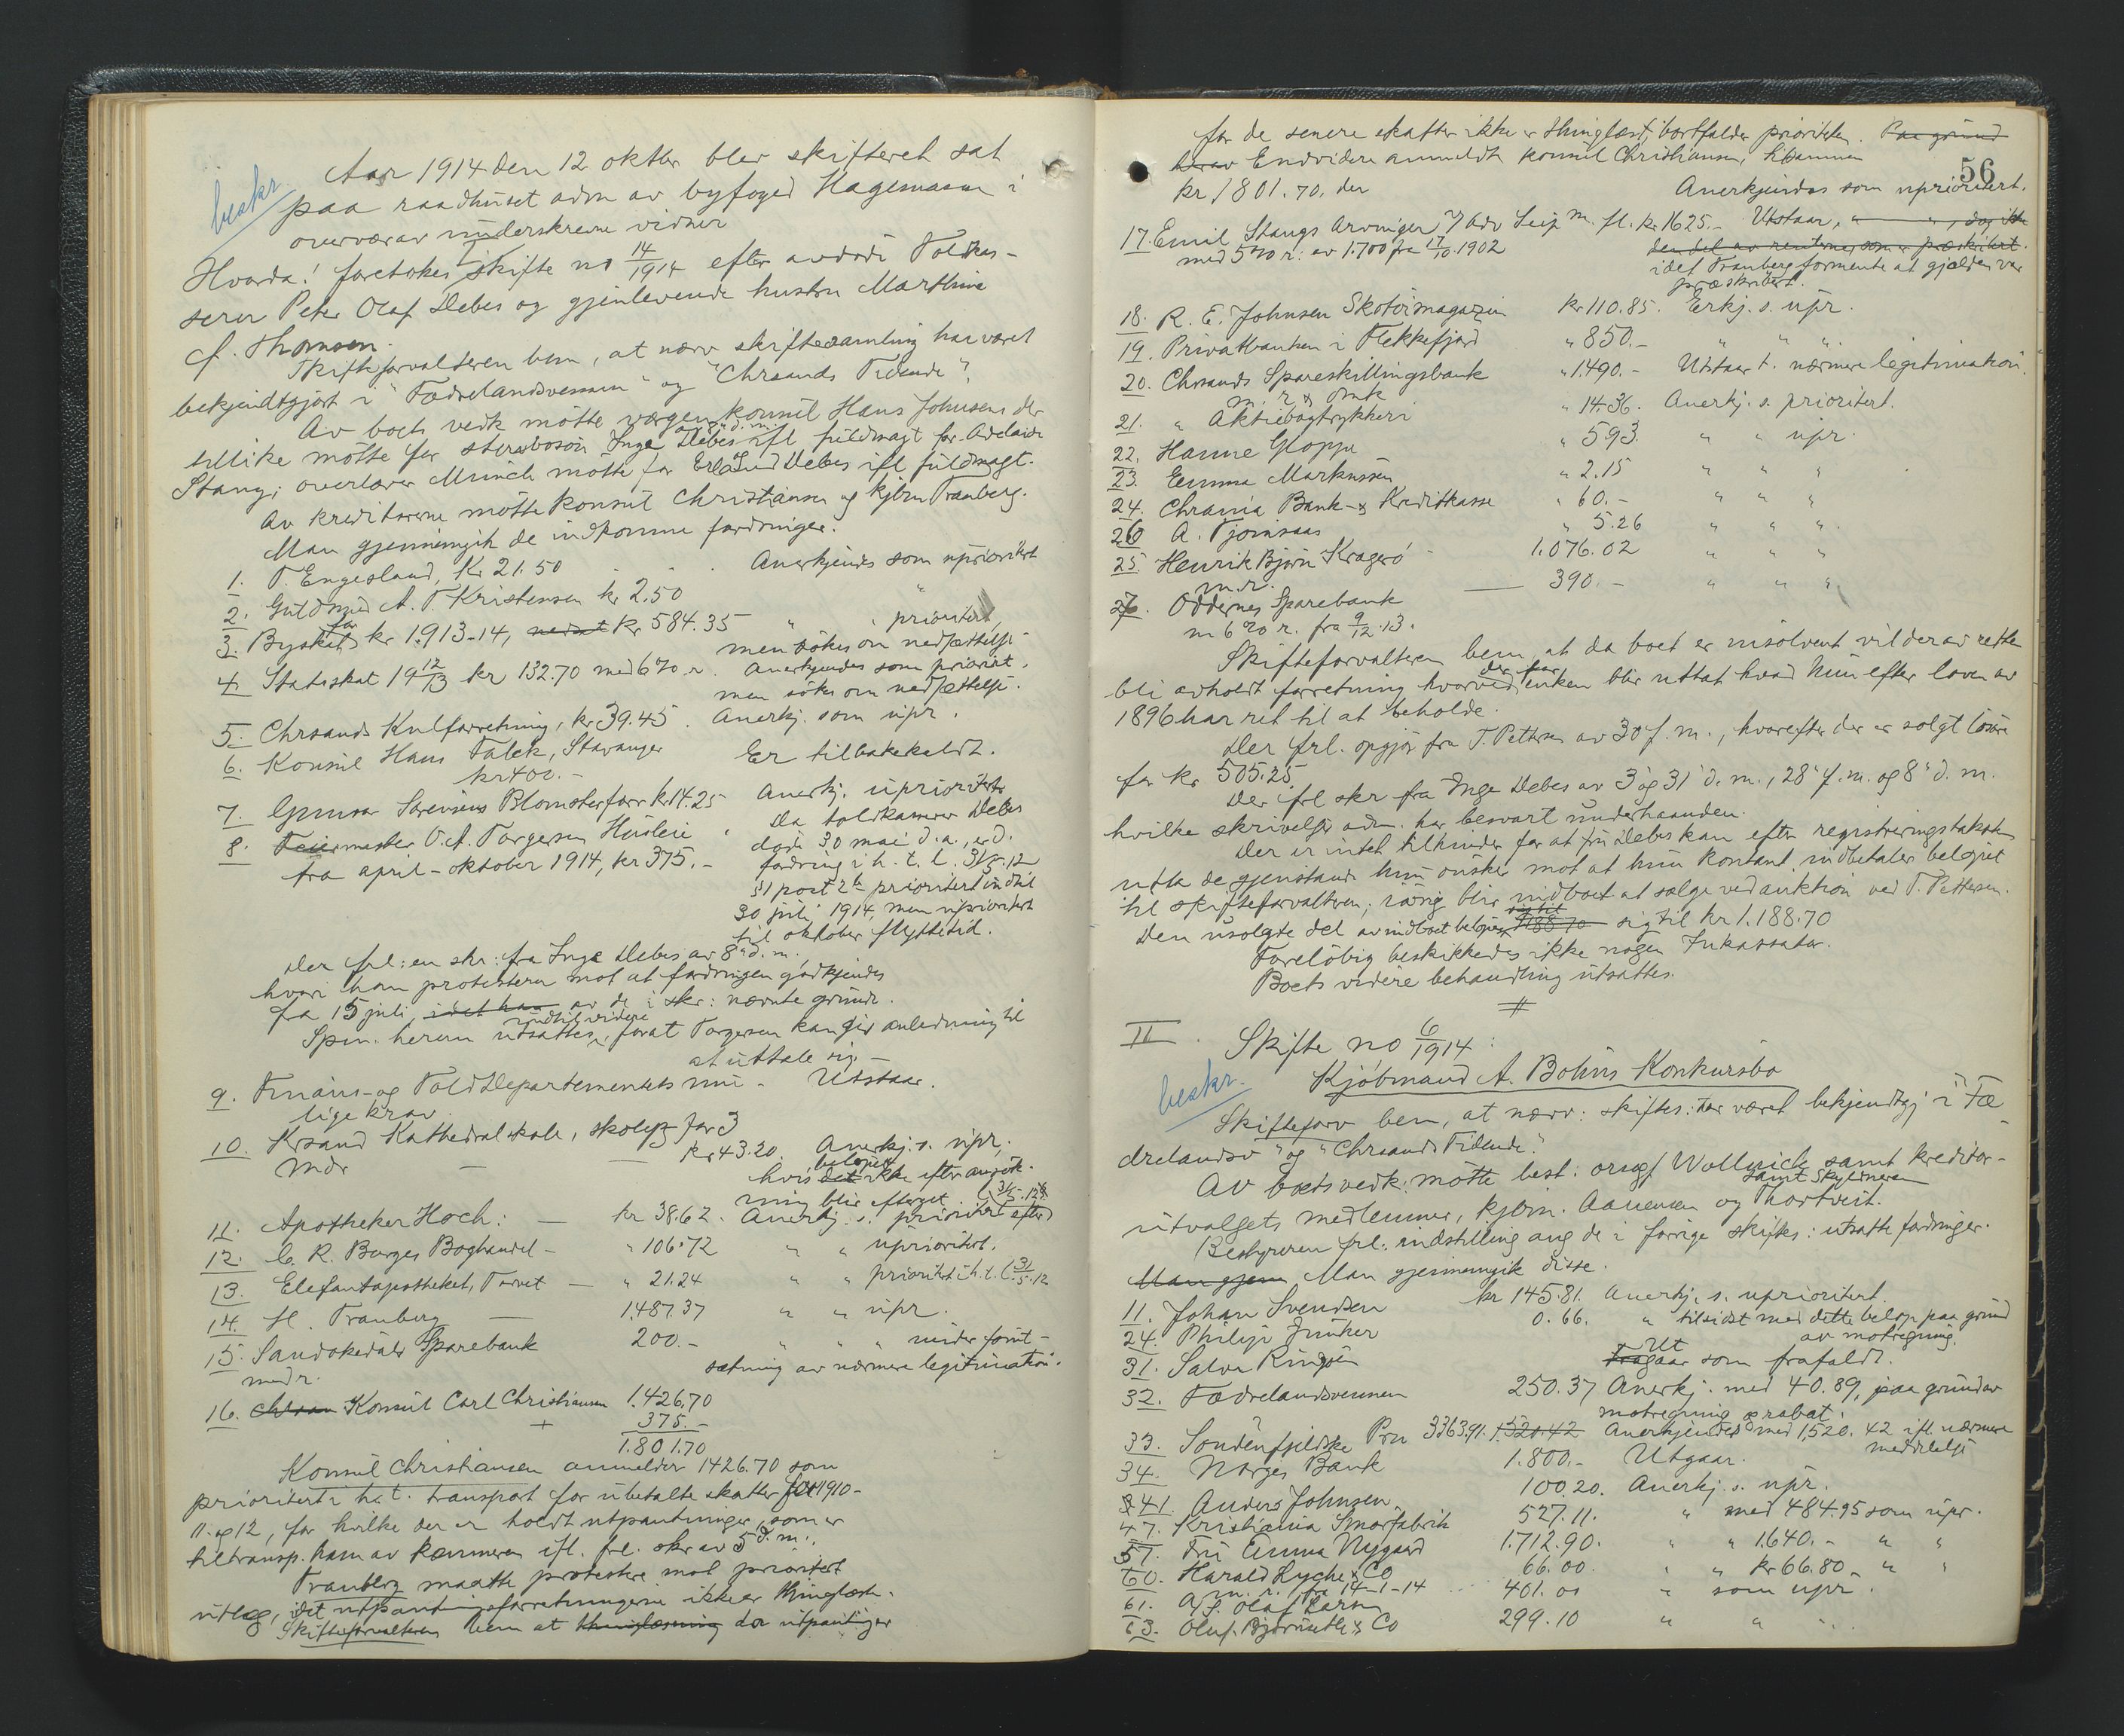 beskr.
Aar 1914 den 12 oktbr blev skifteret sat
paa raadhuset adm av byfoged Hagemann i
overvær av underskrevne vidner
Hvorda! foretokes skifte no 14/1914 efter avdöde Toldkas-
serer Peter Olaf Debes og gjenlevende hustru Marthine
f. Thomsen.
Skifteforvalteren bem, at nærv skiftesamling har været
bekjendtgjort i "Fædrelandsvennen" og "Chrsands Tidende".
Av boets vedk mötte værgen, konsul Hans Johnsen, der
tillike mötte for sterbosön Inge Debes ifl fuldmagt for Adelaide
Stang; overlærer Munch mötte for Erland Debes ifl fuldmagt.
Av kreditorerne mötte konsul Christiansen og kjöbm Tranberg.
Man gjennemgik de indkomne fordringer.
1. T. Engesland, kr 21.50 Anerkjendes som uprioritert
2. Guldsmed A. T. Kristensen kr 2.50 "
3. Byskat for kr 1913-14, nedsat kr 584.35 " " prioritert,
men sökes om nedsættelse.
4. Statsskat 19 12/13 kr 132.70 med 6% r. Anerkjendes som priorit.
men sökes om nedsættelse.
5. Chrsands Kulforretning, kr 39.45. Anerkj. som upr.
6. Konsul Hans Falck, Stavanger Er tilbakekaldt.
kr 400.-
7. Gunvor Sörensens Blomsterforr kr 14.25 Anerkj. uprioritert
8. Feiermester O. A. Torgersen Husleie Da toldkasserer Debes
fra april - oktober 1914, kr 375.- döde 30 mai d.a., er d.
fordring i h. t. l. 31/5-12
§1 post 2b prioritert indtil
30 juli 1914, men uprioritert
til oktober flyttetid.
Der frl: en skr: fra Inge Debes av 8' d. m.,
hvori han protesterer mot at fordringen godkjendes
fra 15 juli, idet han av de i skr: nævnte grunde.
Spm. herom utsattes indtil videre, forat Torgersen kan gis anledning til
at uttale sig -
9. Finans- og Tolddepartementets mu- Utstaar.
lige krav.
10. Krsand Kathedralskole, skolep. for 3
mdr — — kr 43.20. Anerkj. s. upr.,
hvis det belöpet ikke efter ansök-
ning blir eftergit. (31/5-12
11. Apotheker Hoch: — kr 38.62. Anerkj. s. prioritert efter)
12. C. R. Borges Boghandel - " 106.72 " " uprioritert.
13. Elefantapotheket, Torvet — " 21.24 " " prioritert i h. t. l. 31/5.12
14. H. Tranberg — 1.487.37 " " upr.
15. Sandökedals Sparebank 200.- " " " under forut-
med r. sætning av nærmere legitimation.
16. Chrsan Konsul Carl Christiansen 1.426.70
+ 375.-
1.801.70
Konsul Christiansen anmelder 1426.70 som
prioritert i h. t. transport for ubetalte skatter for 1910-
11. og 12, for hvilke der er holdt utpantninger, som er
tiltransp. ham av kæmneren ifl. frl. skr av 5 d. m.
Tranberg maatte protestere mot prioritert
utlæg, idet utpantningsforretningerne ikke er thinglæst.
Skifteforvalteren bem at thinglæsning da utpantinger
56
for de senere skatter ikke er thinglæst, bortfalder prioriteten. Paa grund
herav Endvidere anmeldte konsul Christiansen, tilsammen
kr 1801.70, der Anerkjendes som uprioritert.
17. Emil Stangs Arvinger v/ Adv Seip m. fl. kr. 1625.- Utstaar, " ", dog ikke
med 5% r: av 1.700 fra 17/10.1902 den del av renterne som er præskribert.
idet Tranberg formente at gjælden var
præskribert.
18. R. E. Johnsen Skotöimagazin kr 110.85. Erkj. s. upr.
19. Privatbanken i Flekkefjord " 850.- " " "
20. Chrsands Spareskillingsbank " 1.490.- Utstaar t. nærmere legitimation.
m. r & omk
21. " Aktiebogtrykkeri " 14.36. Anerkj. s. prioritert.
22. Hanne Gloppe " 593. " " upr.
23. Emma Markussen " 2.15 " " "
24. Chrania Bank- & Kreditkasse " 60.- " " "
26 A. Tjomsaas " 5.26 " " "
25. Henrik Björn Kragerö - 1.076.02 " " "
m. r.
27. Oddernes Sparebank — 390.- " " "
m 6% r. fra 9/12.13.
Skifteforvalteren bem, at da boet er insolvent vil der av retten
bli avholdt forretning hvorved der for enken blir uttat hvad hun efter loven av
1896 har ret til at beholde.
Der frl. opgjör fra T. Pettersen av 30 f. m., hvorefter der er solgt lösöre
for kr 505.25.
Der frl skr fra Inge Debes av 3' og 31' d. m., 28' f. m. og 8' d. m.
hvilke skrivelser adm. har besvart underhaanden.
Der er intet tilhinder for at fru Debes kan efter registreringstaksten
utta de gjenstande hun önsker mot at hun kontant indbetaler belöpet
til skifteforvalteren; iövrig blir indboet at sælge ved auktion ved T. Pettersen.
Den usolgte del av indboet belöper sig til 1188.70 sig til kr 1.188.70
Forelöbig beskikkedes ikke nogen Inkassator.
Boets videre behandling utsattes.
II. Skifte no 6/1914:
beskr.
Kjöbmand A. Bohns Konkursbo
Skifteforv bem, at nærv: skiftes: har været bekjendtgj i Fæ-
drelandsv" og "Chrsands Tidende".
Av boets vedk: mötte best. orsagf Wollwick samt kreditor-
samt skyldneren
utvalgets medlemmer, kjöbm. Aanensen og Thortveit.
Bestyreren frl: indstilling ang de i forrige skiftes: utsatte fordringer.
Man gjenn Man gjennemgik disse.
11. Johan Svendsen kr 145.81. Anerkj. s. uprioritert.
24. Philip Junker 0.66. " tilsidst med dette belöp paa grund
av motregning.
31. Salve Ringsen Fra Utgaar som frafaldt.
32. Fædrelandsvennen 250.37 Anerkj. med 40.89, paa grund av
motregning & rabat.
33. Söndenfjeldske Prv 3363.91. 1.520.42 Anerkjendes med 1.520.42 ifl. nærmere
meddelelse
34. Norges Bank 1.800.- Utgaar.
41. Anders Johnsen 100.20. Anerkj. s. upr.
47. Kristiania Smörfabrik 527.11. " med 484.95 som upr.
57. Fru Emma Nygaard 1.712.90. " " 1.640.- " "
60. Harald Lyche & Co 66.00 " " kr 66.80 - " "
m. r. fra 14-1-14
61. A/S. Olaf Larsen 401.00 " som upr.
63. Oluf Björnseth & Co 299.10 " " "